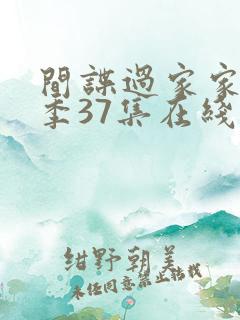 間諜過家家
季37集在綫
紺野朝美
未经同意禁止转载